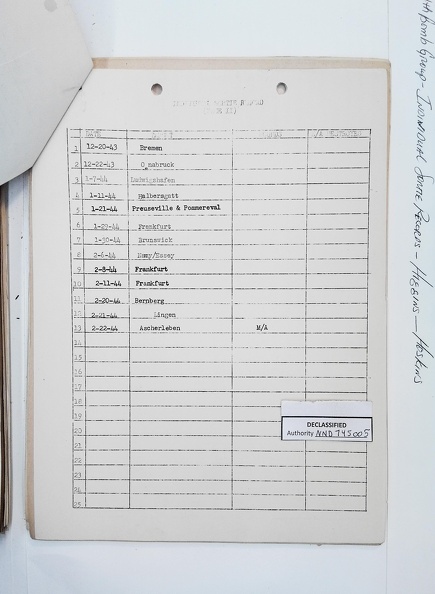 DATE
1 12-20-43 Bremen
2 12-22-43 Osnabruck
3 1-7-44 Ludwigshafen
4 1-11-44 Halberstatt
5 1-21-44 Preuseville & Pommereval
6 1-29-44 Frankfurt
7 1-30-44 Brunswick
8 2-6-44
9 2-8-44 Frankfurt
10 2-11-44 Frankfurt
11 2-20-44 Bernberg
12 2-21-44 Lingen
13 2-22-44 Ascherleben M/A
14
15
16
17
18
19
20
21
22
23
24
25
DECLASSIFIED
Authority NND 745005
Bomb Group - Individual Sortie Records - Higgins - Hoskins